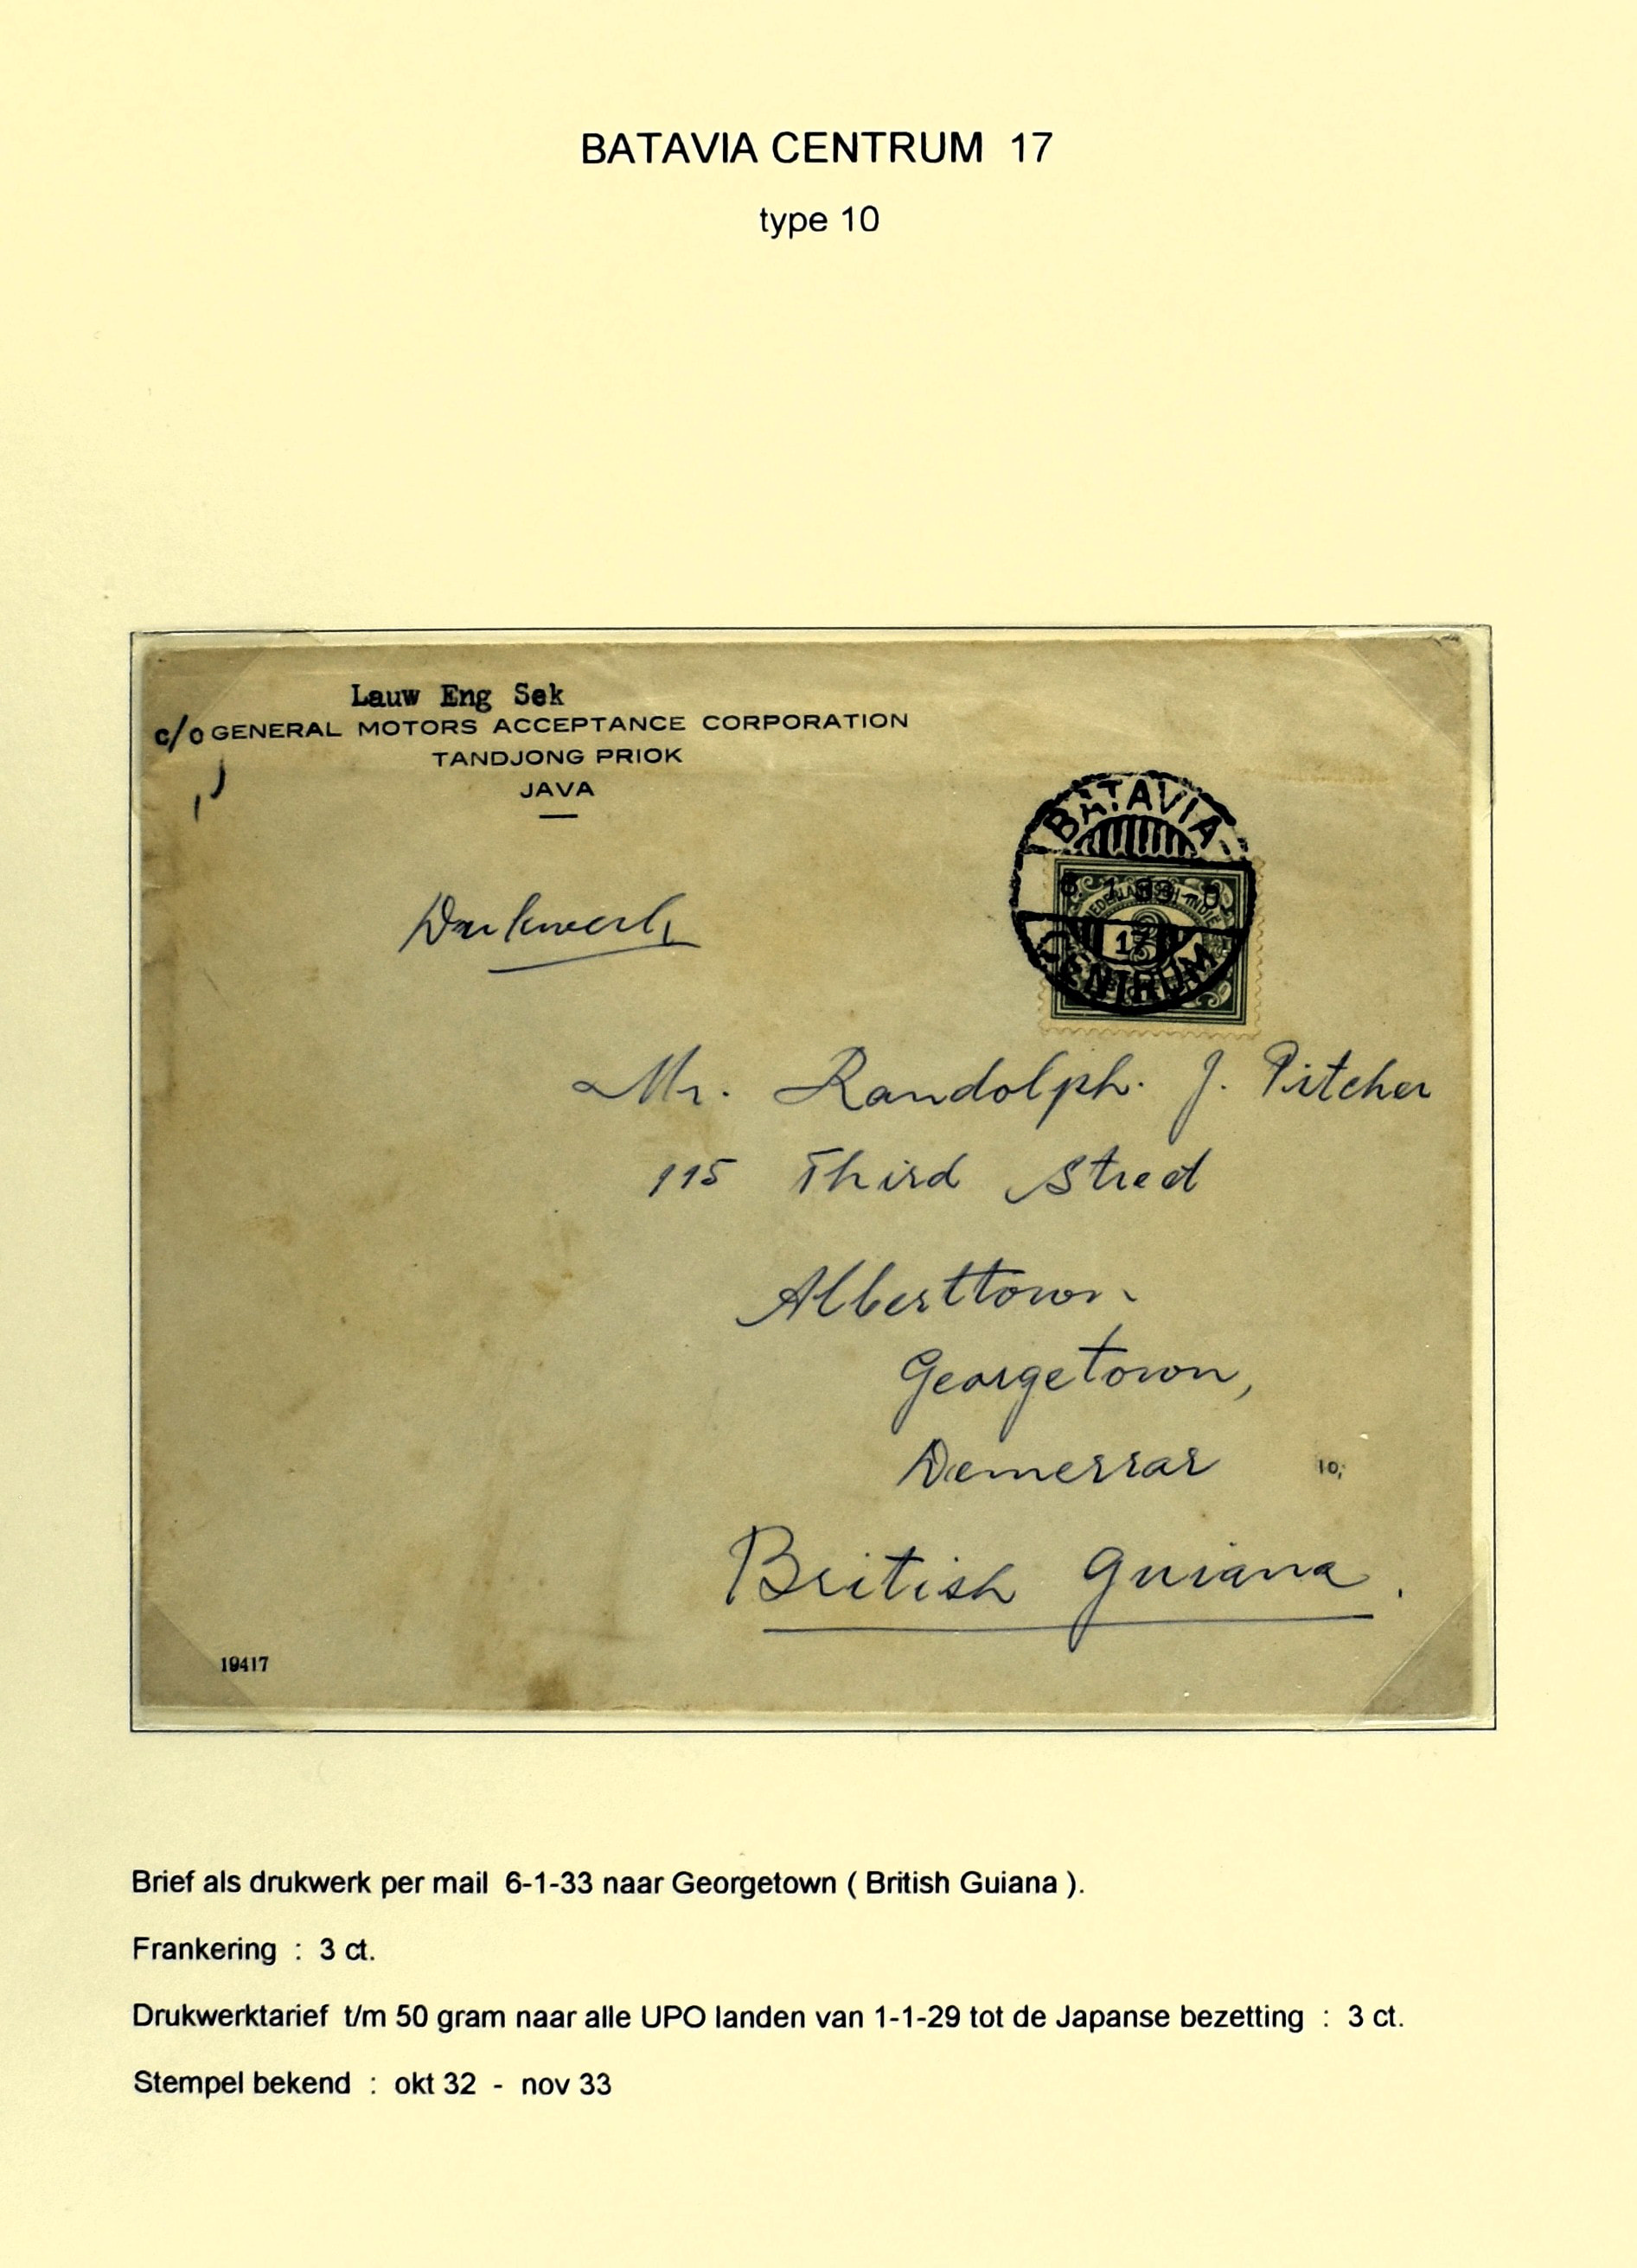 BATAVIA CENTRUM 17
type 10
Lauw Eng Sek
c/o GENERAL MOTORS ACCEPTANCE CORPORATION
TANDJONG PRIOK
JAVA
BATAVIA
NEDERLANDSCH-INDIE
17
CENTRUM
Drukwerk
Mr. Randolph. J. Pitcher
115 Third Street
Alberttown.
Georgetown,
Demerrar
10,
British Guiana.
19417
Brief als drukwerk per mail 6-1-33 naar Georgetown ( British Guiana ).
Frankering : 3 ct.
Drukwerktarief t/m 50 gram naar alle UPO landen van 1-1-29 tot de Japanse bezetting : 3 ct.
Stempel bekend : okt 32 - nov 33